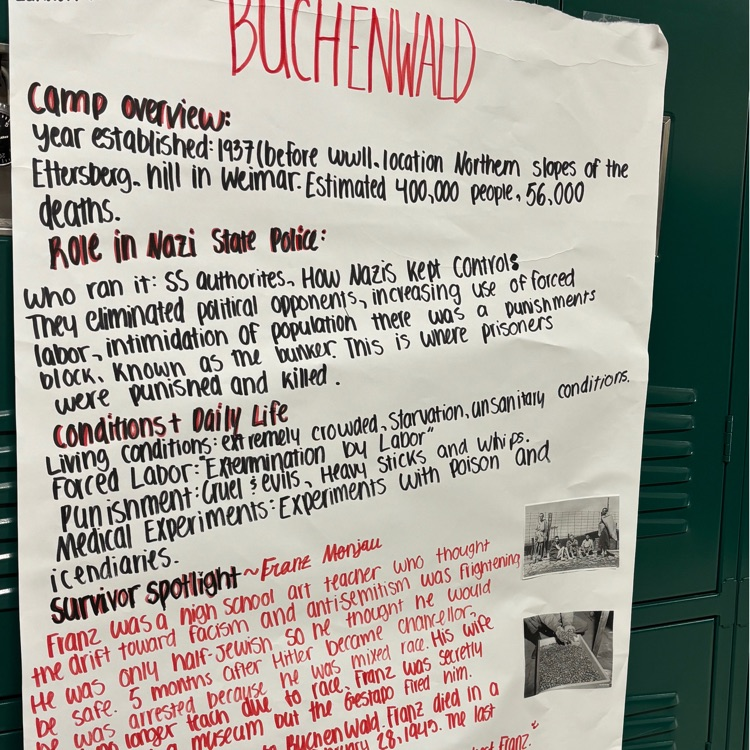 BUCHENWALD
Camp overview:
Year established: 1937 (before WWII. location Northern slopes of the
Ettersberg. hill in Weimar. Estimated 400,000 people, 56,000
deaths.
Role in Nazi State Police:
Who ran it: SS authorites. How Nazis Kept Controls
They eliminated political opponents, increasing use of forced
labor, intimidation of population there was a punishments
block. Known as the bunker. This is where prisoners
were punished and killed.
Conditions + Daily Life
Living conditions: extremely crowded, starvation, unsanitary conditions.
Forced Labor: "Extermination by Labor"
Punishment: Cruel & evils, Heavy Sticks and Whips.
Medical Experiments: Experiments with Poison and
icendiaries.
survivor spotlight ~ Franz Monjau
Franz was a high school art teacher who thought
the drift toward facism and antisemitism was frightening
He was only half-Jewish so he thought he would
be safe. 5 months after Hitler became chancellor,
he was arrested because he was mixed race. His wife
no longer teach due to race. Franz was secretly
a museum but the Gestapo fired him.
to Buchenwald. Franz died in a
28, 1945. The last
Franz."